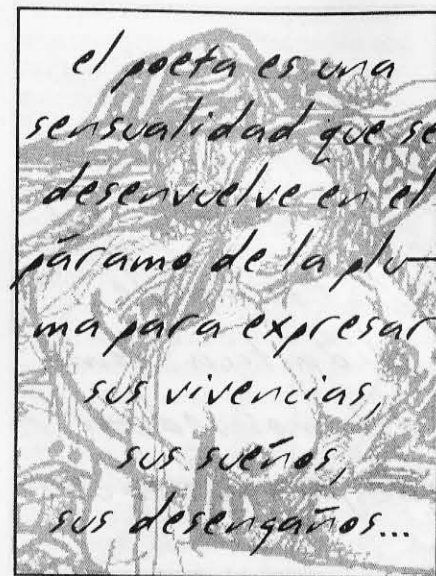 el poeta es una
sensualidad que se
desenvuelve en el
páramo de la plu-
ma para expresar
sus vivencias,
sus sueños,
sus desengaños...